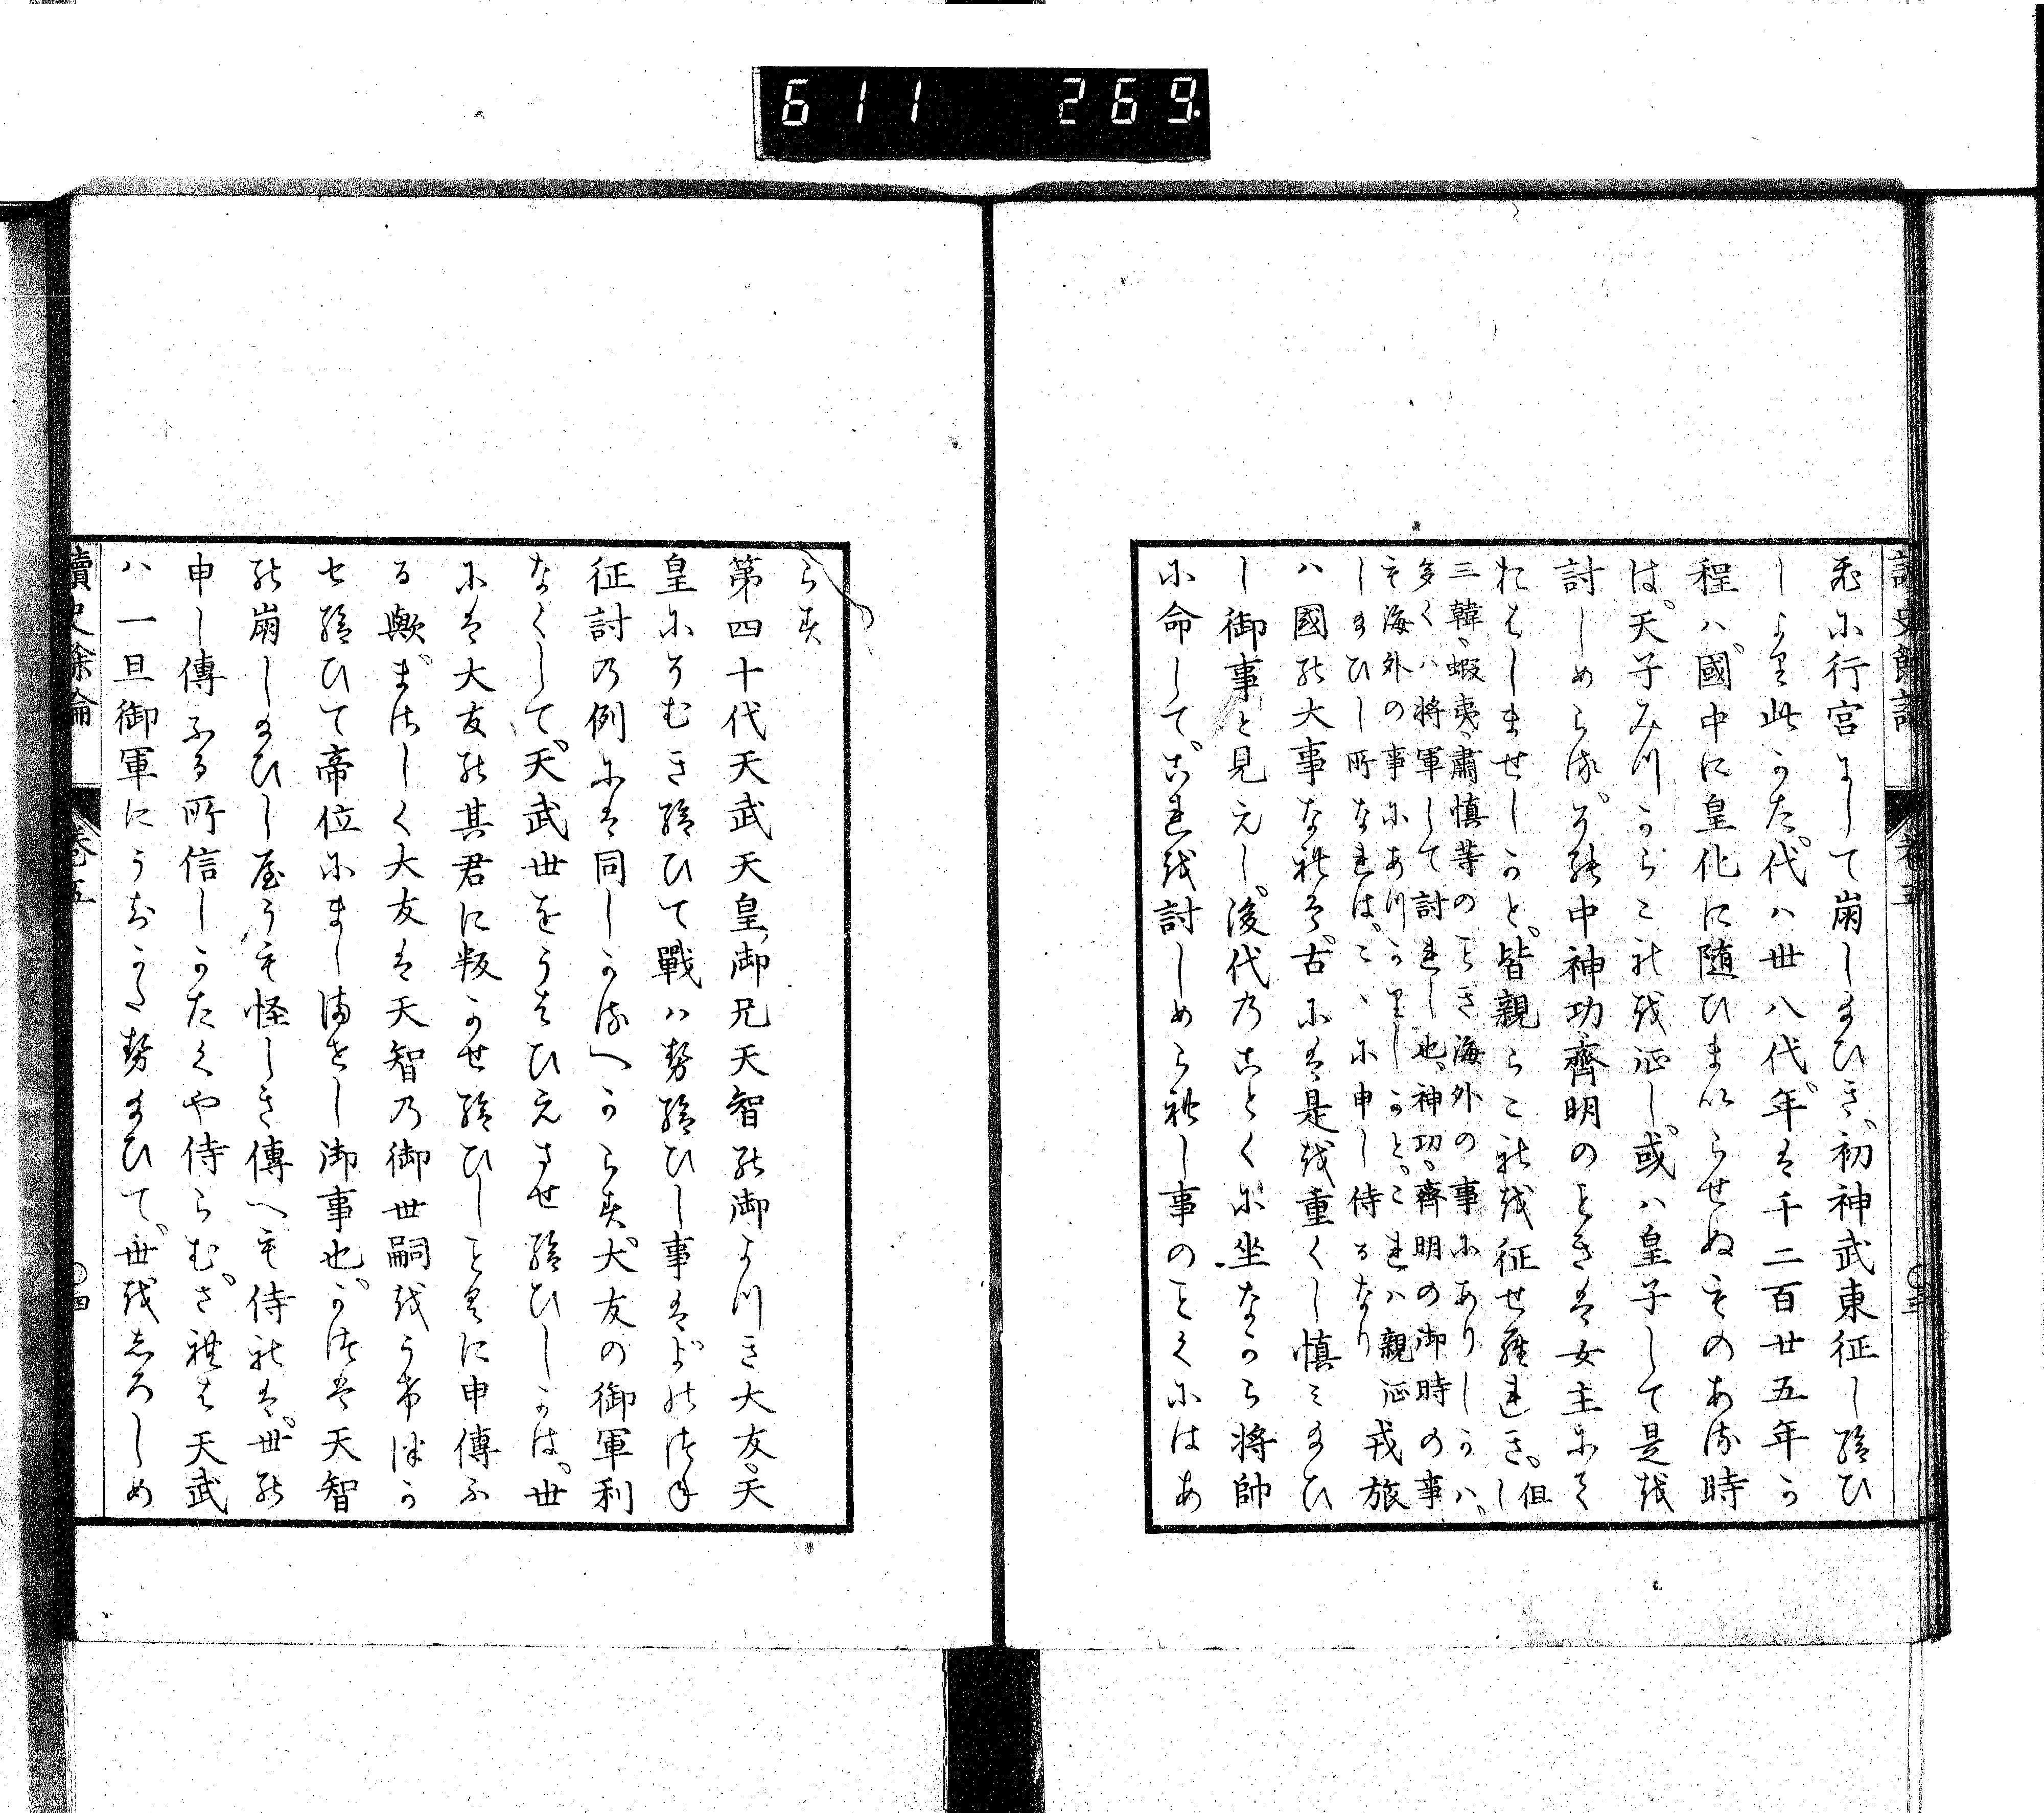 611 269
讀史餘論 卷五 〇三
忽に行宮にして崩し玉ひき、初神武東征し給ひ
しより此かた、代ハ卅八代、年は千二百廿五年か
程ハ、國中に皇化に随ひまいらせぬものある時
は、天子みつからこれを征し、或ハ皇子して是を
討しめらる、其中神功齊明のこときは女主にて
おはしませしかと、皆親らこれを征せられき、但し
三韓、蝦夷、肅慎等のことき海外の事にありしかハ、
多くハ将軍して討れし也、神功、齊明の御時の事
も海外の事にあつかりしかと、これハ親征
しまひし所なれは、こゝに申し侍るなり 戎旅
ハ國の大事なれは、古には是を重くし慎ミ玉ひ
し御事と見えし、後代のことくに坐なから将帥
に命して、これを討しめられし事のことくにはあ
らす
第四十代天武天皇、御兄天智の御よつき大友、天
皇にそむき給ひて戰ハ勢給ひし事はよのつね
征討の例には同しかるへからす、大友の御軍利
なくして、天武世をうはひえさせ給ひしかは、世
には大友の其君に叛かせ給ひしことくに申傳ふ
る歟、まさしく大友は天智の御世嗣をうけ継か
せ給ひて帝位にまし満せし御事也、かつは天智
の崩し玉ひし屋うも怪しき傳へも侍れは、世の
申し傳ふる所信しかたくや侍らむ、されは天武
ハ一旦御軍にうちかた勢玉ひて、世をしろしめ
讀史餘論 卷五 〇四